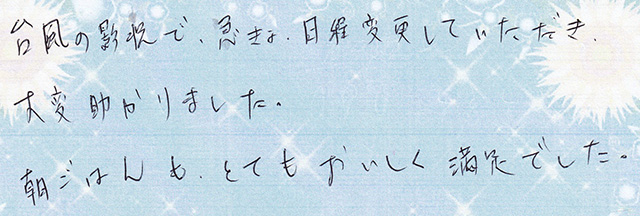 台風の影況で、急きょ、日程変更していただき、
大変助かりました。
朝ごはんも、とてもおいしく満足でした。